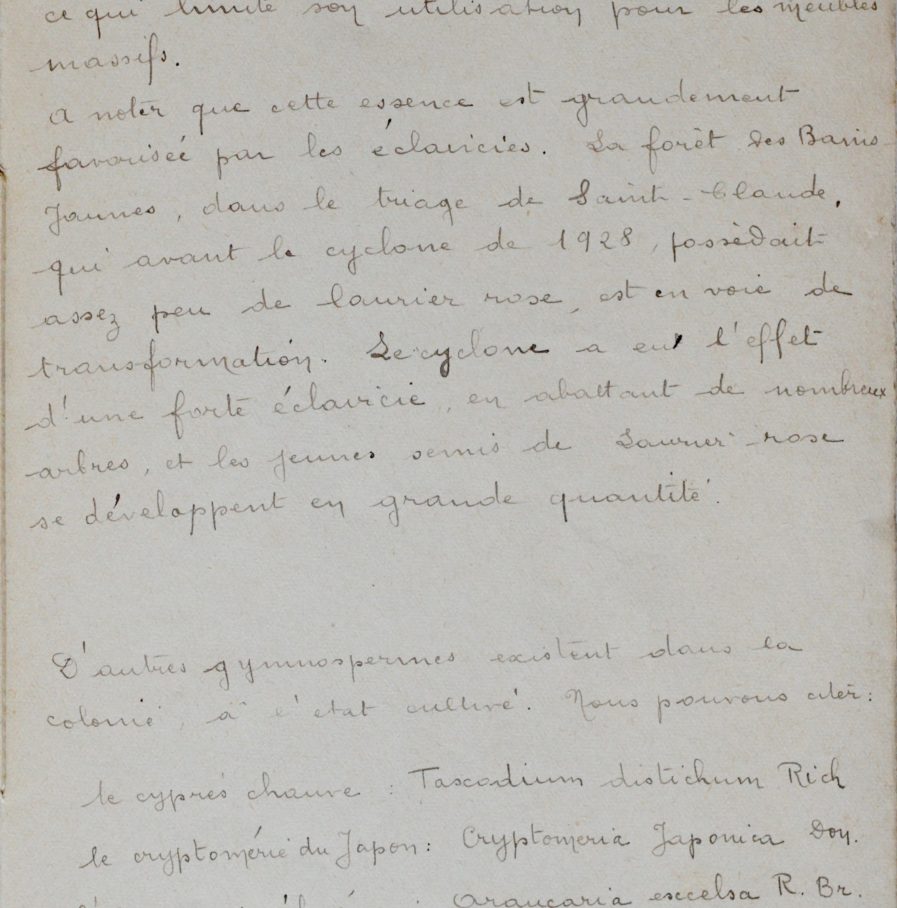 ce qui limite son utilisation pour les meubles
massifs.
A noter que cette essence est grandement
favorisée par les éclaircies. La forêt des Bains
Jaunes, dans le triage de Saint-Claude,
qui avant le cyclone de 1928, possédait
assez peu de laurier rose, est en voie de
transformation. Le cyclone a eu l'effet
d'une forte éclaircie, en abattant de nombreux
arbres, et les jeunes semis de Laurier-rose
se développent en grande quantité.
D'autres gymnospermes existent dans la
colonie, à l'état cultivé. Nous pouvons citer:
le cyprès chauve : Tascodium distichum Rich
le cryptomérie du Japon: Cryptomeria Japonica Don.
: Araucaria excelsa R. Br.